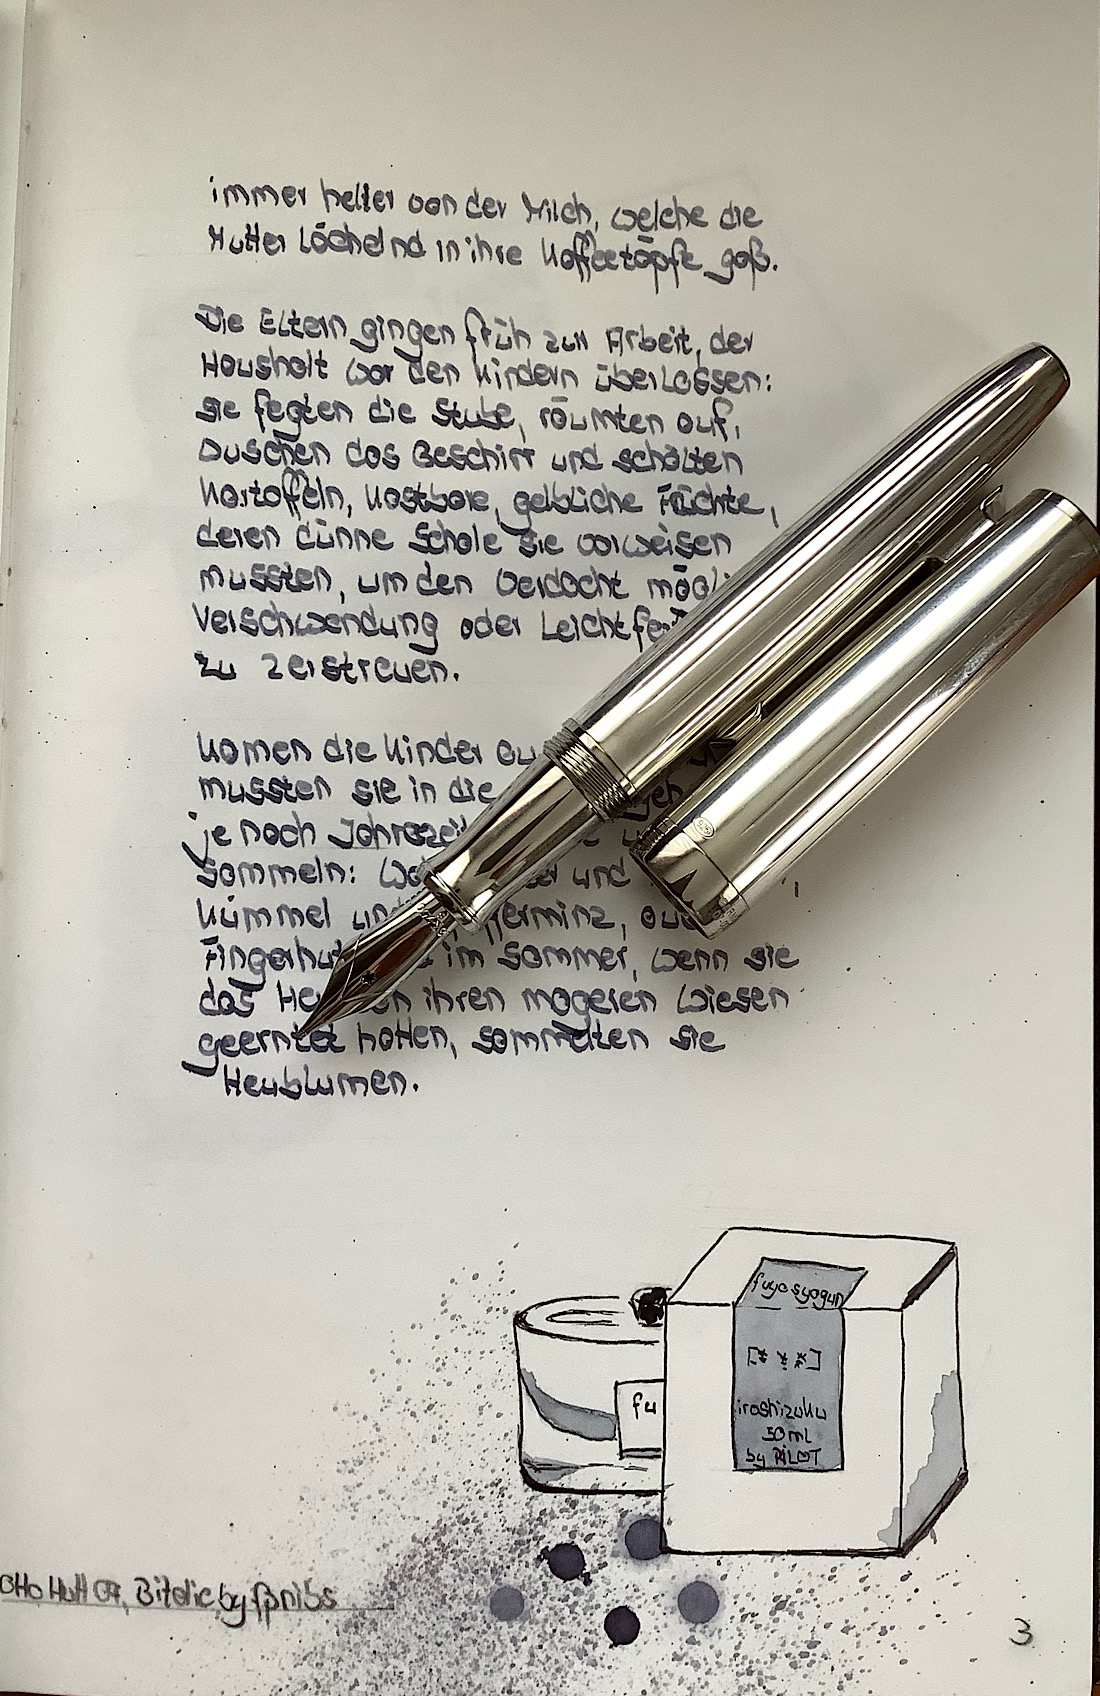 immer heller von der Milch, welche die
Mutter lächelnd in ihre Kaffeetöpfe goß.
Die Eltern gingen früh zur Arbeit, der
Haushalt war den Kindern überlassen:
sie fegten die Stube, räumten auf,
wuschen das Geschirr und schälten
Kartoffeln, kostbare, gelbliche Früchte,
deren dünne Schale sie vorweisen
mussten, um den Verdacht mögli
Verschwendung oder Leichtfer
zu zerstreuen.
Kamen die Kinder au
mussten sie in die
je nach Jahreszeit
sammeln: und
Kümmel und
Fingerhut im Sommer, wenn sie
das Heu ihren mageren Wiesen
geerntet hatten, sammelten sie
Heublumen.
fuyo syogun
[* * *]
iroshizuku
50 ml
by PILOT
fu
Otto Hutt 07, Bitalic by fpnibs
3